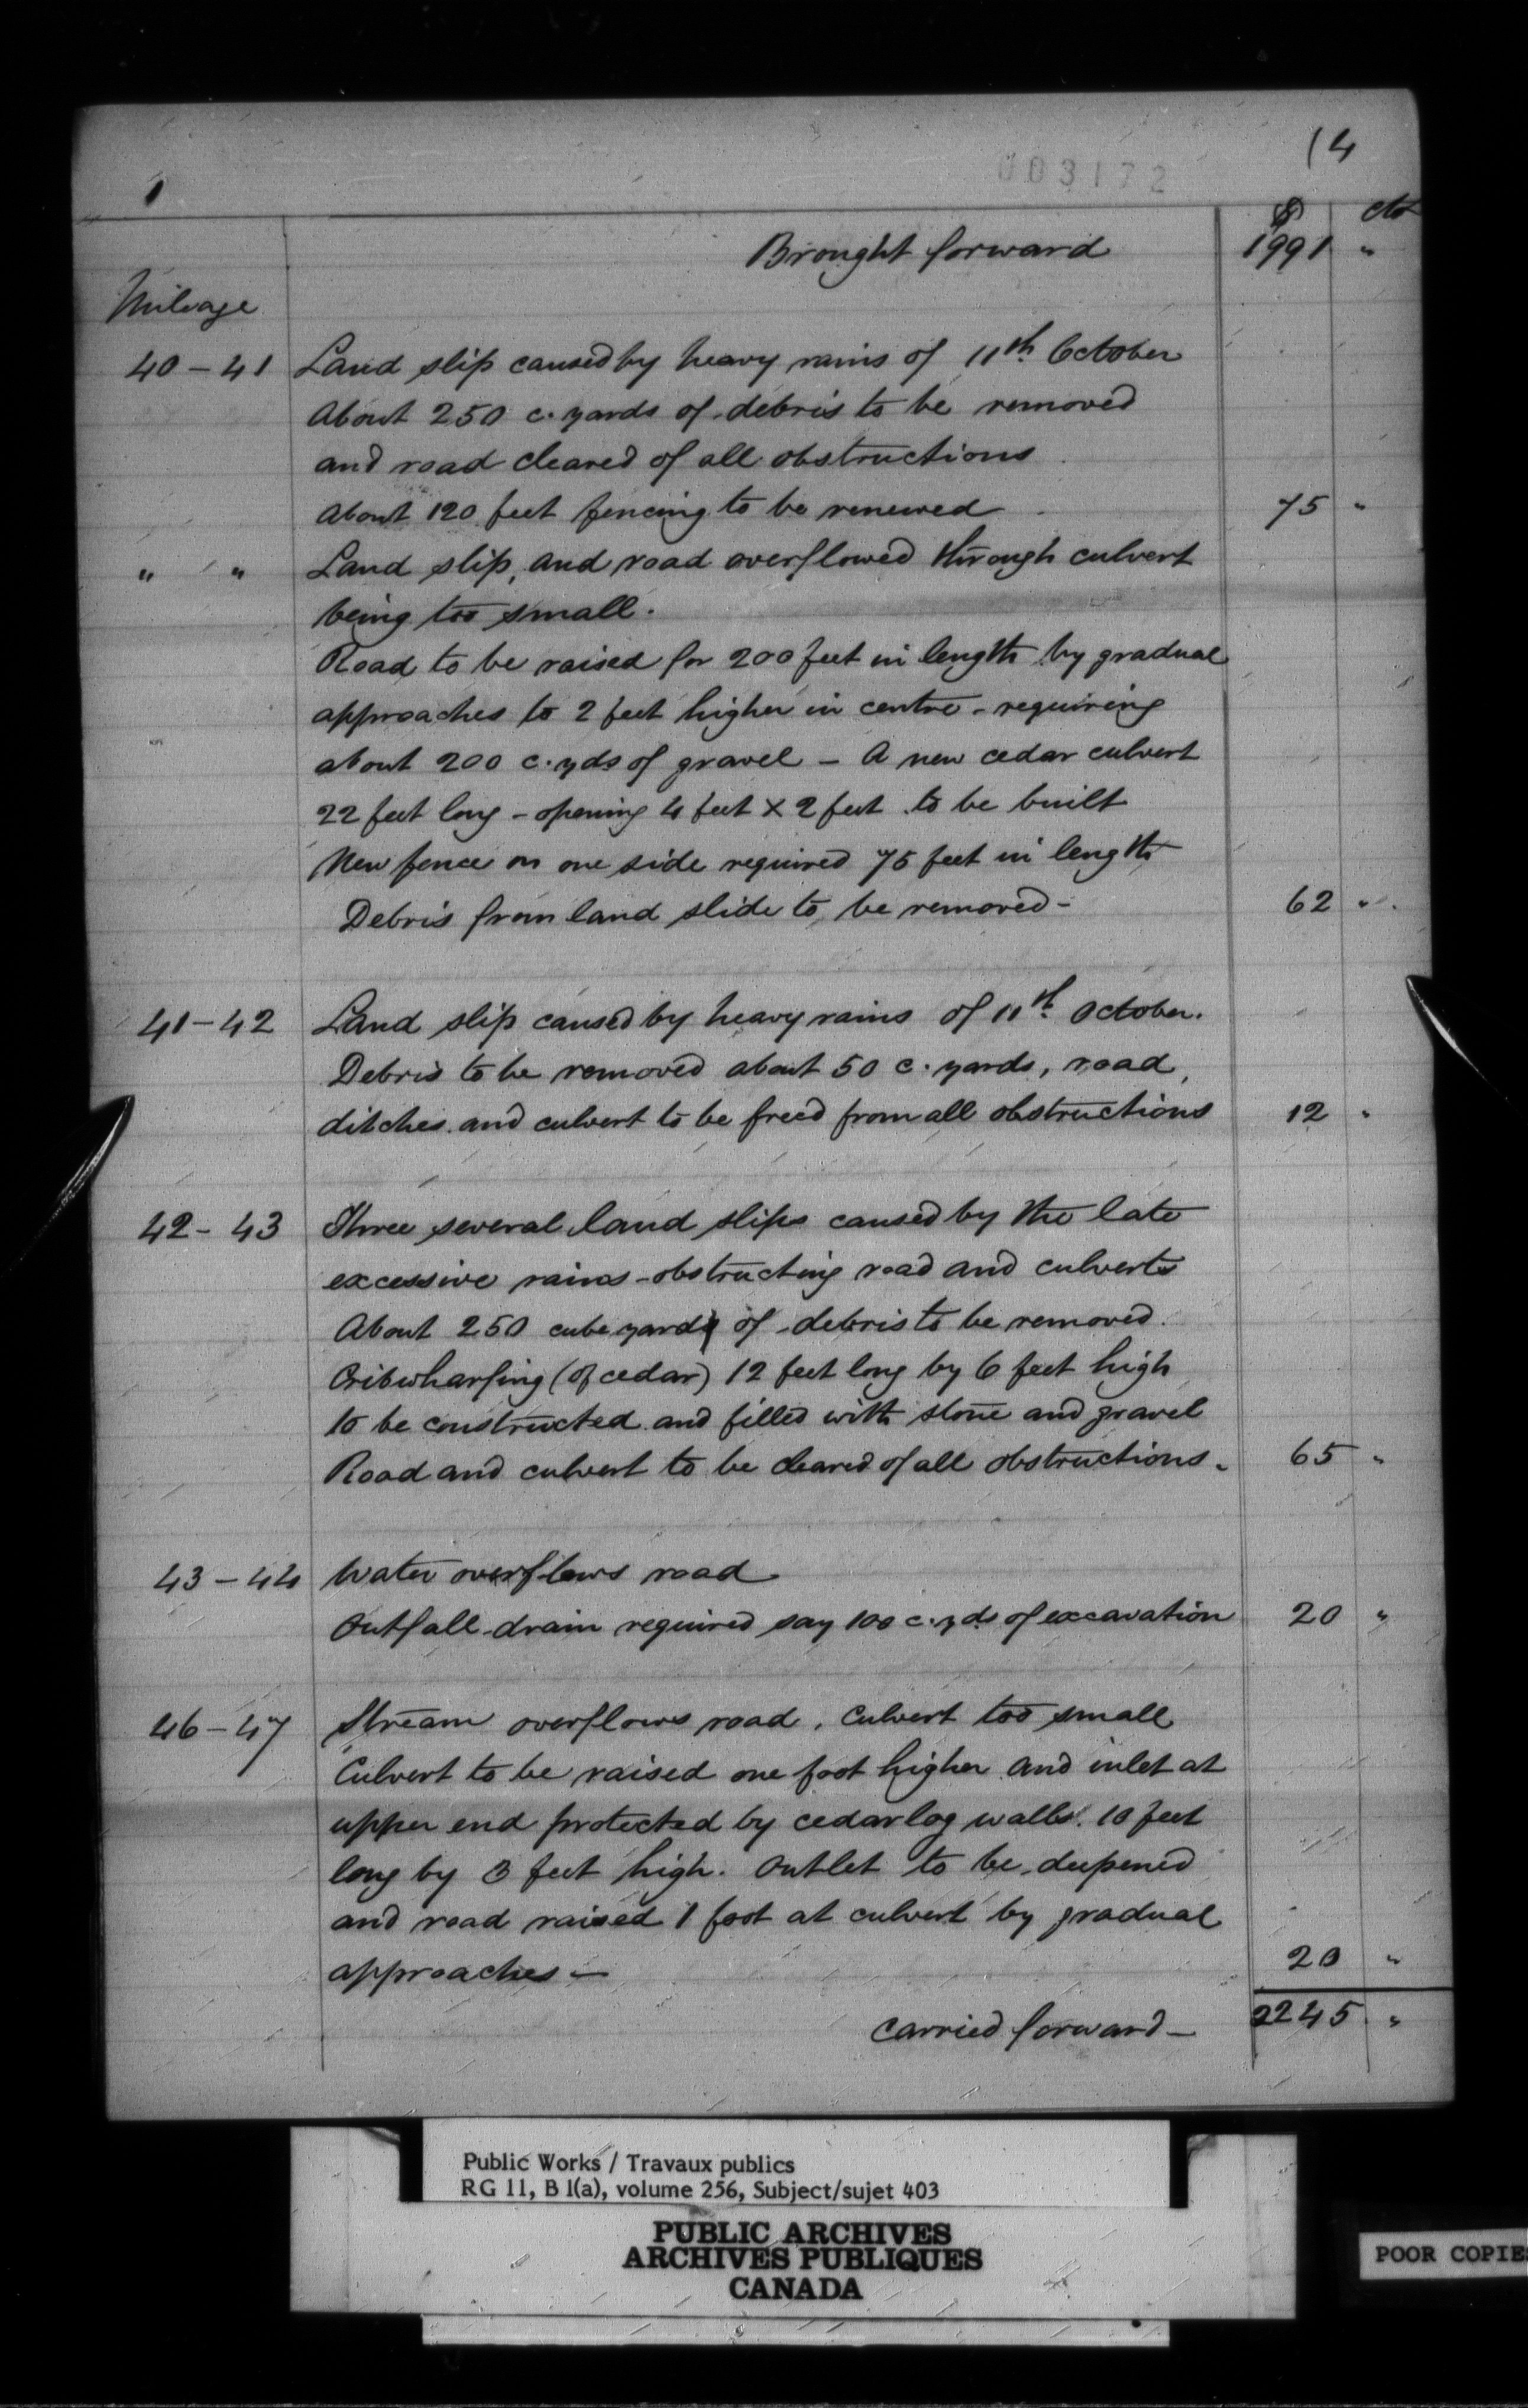 (4
003172
$ cts
Brought forward 1991 "
Mileage
40 - 41 Land slip caused by heavy rains of 11th. October
About 250 c. yards of debris to be removed
and road cleared of all obstructions
About 120 feet fencing to be renewed 75 "
" " Land slip, and road overflowed through culvert
being too small.
Road to be raised for 200 feet in length by gradual
approaches to 2 feet higher in centre - requiring
about 200 c. yds of gravel - A new cedar culvert
22 feet long - opening 4 feet x 2 feet to be built
New fence on one side required 75 feet in length
Debris from land slide to be removed - 62 "
41 - 42 Land slip caused by heavy rains of 11th. October.
Debris to be removed about 50 c. yards, road,
ditches and culvert to be freed from all obstructions 12 "
42 - 43 Three several land slips caused by the late
excessive rains - obstructing road and culverts
About 250 cube yards of debris to be removed.
Cribwharfing (of cedar) 12 feet long by 6 feet high
to be constructed and filled with stone and gravel
Road and culvert to be cleared of all obstructions. 65 "
43 - 44 Water overflows road
Outfall drain required say 100 c. yds of excavation 20 "
46 - 47 Stream overflows road, Culvert too small
Culvert to be raised one foot higher and inlet at
upper end protected by cedar log walls. 10 feet
long by 3 feet high. Outlet to be deepened
and road raised 1 foot at culvert by gradual
approaches - 20 "
Carried forward - 2245 "
Public Works / Travaux publics
RG 11, B 1(a), volume 256, Subject/sujet 403
PUBLIC ARCHIVES
ARCHIVES PUBLIQUES
CANADA
POOR COPIES